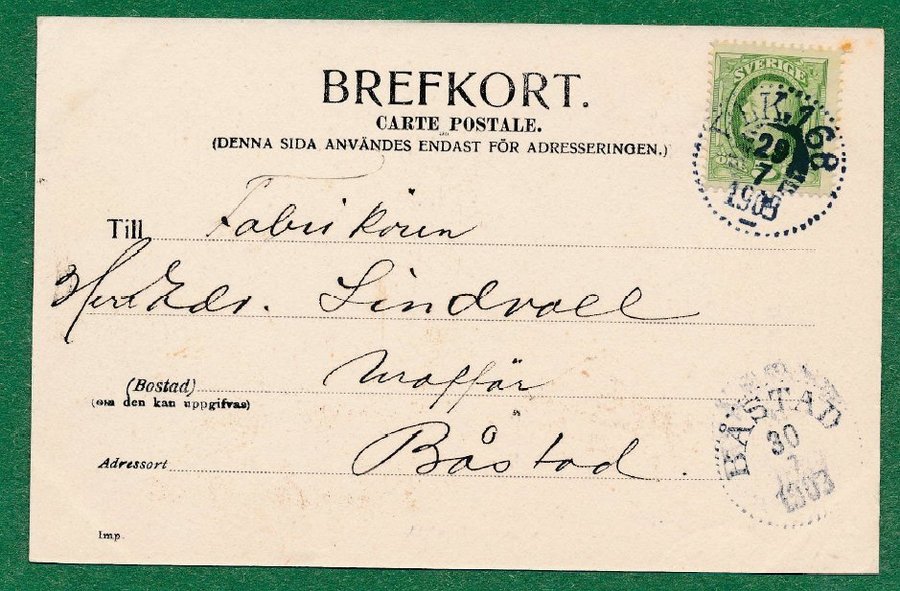 BREFKORT.
CARTE POSTALE.
(DENNA SIDA ANVÄNDES ENDAST FÖR ADRESSERINGEN.)
SVERIGE
PLK. 168
29
7
1903
Till Fabrikören
Herr Edv. Lindvall
(Bostad)
(om den kan uppgifvas)
BÅSTAD
30
7
1903
Adressort Båstad.
Imp.